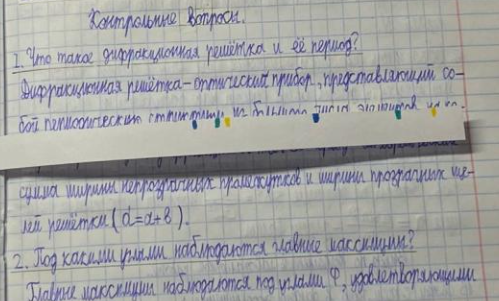 Контрольные вопросы.
1. Что такое дифракционная решётка и её период?
Дифракционная решётка-оптический прибор, представляющий со-
бой периодическую структуру из большого числа
сумма ширины непрозрачных промежутков и ширины прозрачных ще-
лей решётки (d=a+b).
2. Под какими углами наблюдаются главные максимумы?
Главные максимумы наблюдаются под углами φ, удовлетворяющими